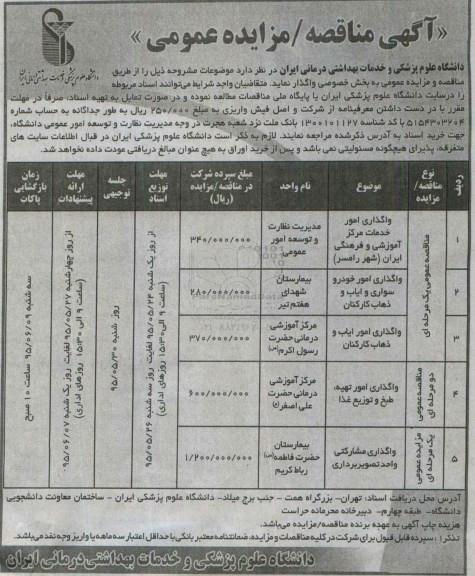 «آگهی مناقصه/مزایده عمومی»
دانشگاه علوم پزشکی و خدمات بهداشتی درمانی ایران در نظر دارد موضوعات مشروحه ذیل را از طریق
مناقصه و مزایده عمومی به بخش خصوصی واگذار نماید. متقاضیان واجد شرایط می‌توانند اسناد مربوطه
را در سایت دانشگاه علوم پزشکی ایران یا پایگاه ملی مناقصات مطالعه نموده و در صورت تمایل به تهیه اسناد، صرفاً در مهلت
مقرر با در دست داشتن معرفینامه از شرکت و اصل فیش واریزی به مبلغ ۲۵۰/۰۰۰ ریال به طور جداگانه به حساب شماره
۵۱۵۴۳۰۳۶۰۴ با کد شناسه ۱۳۰۰۱۰۱۱۲۷ بانک ملت نزد شعبه هجرت در وجه مدیریت نظارت و توسعه امور عمومی دانشگاه،
جهت خرید اسناد به آدرس ذکرشده مراجعه نمایند. لازم به ذکر است دانشگاه علوم پزشکی ایران در قبال اطلاعات سایت های
متفرقه، پذیرای هیچگونه مسئولیتی نمی باشد و پس از خرید اوراق به هیچ عنوان مبالغ دریافتی عودت داده نخواهد شد.
ردیف
نوع مناقصه/ مزایده
موضوع
نام واحد
مبلغ سپرده شرکت در مناقصه/مزایده (ریال)
مهلت توزیع اسناد
جلسه توجیهی
مهلت ارائه پیشنهادات
زمان بازگشایی پاکات
۱
مناقصه عمومی یک مرحله ای
واگذاری امور خدمات مرکز آموزشی و فرهنگی ایران (شهر رامسر)
مدیریت نظارت و توسعه امور عمومی
۳۴۰/۰۰۰/۰۰۰
از روز یک شنبه ۹۵/۰۵/۲۴ لغایت روز سه شنبه ۹۵/۰۵/۲۶ (ساعت ۹ الی ۱۵:۳۰ روزهای اداری)
روز شنبه ۹۵/۰۵/۳۰
از روز چهارشنبه ۹۵/۰۵/۲۷ لغایت روز یک شنبه ۹۵/۰۶/۰۷ (ساعت ۹ الی ۱۵:۳۰ روزهای اداری)
سه شنبه ۹۵/۰۶/۰۹ ساعت ۱۰ صبح
۲
واگذاری امور خودرو سواری و ایاب و ذهاب کارکنان
بیمارستان شهدای هفتم تیر
۲۸۰/۰۰۰/۰۰۰
۳
واگذاری امور ایاب و ذهاب کارکنان
مرکز آموزشی درمانی حضرت رسول اکرم(ص)
۳۷۰/۰۰۰/۰۰۰
۴
مناقصه عمومی دو مرحله ای
واگذاری امور تهیه، طبخ و توزیع غذا
مرکز آموزشی درمانی حضرت علی اصغر(ع)
۶۰۰/۰۰۰/۰۰۰
۵
مزایده عمومی یک مرحله ای
واگذاری مشارکتی واحد تصویربرداری
بیمارستان حضرت فاطمه(س) رباط کریم
۱/۲۰۰/۰۰۰/۰۰۰
آدرس محل دریافت اسناد: تهران- بزرگراه همت - جنب برج میلاد- دانشگاه علوم پزشکی ایران - ساختمان معاونت دانشجویی
دانشگاه- طبقه چهارم- دبیرخانه محرمانه حراست
هزینه چاپ آگهی به عهده برنده مناقصه/مزایده می‌باشد.
تذکر: سپرده قابل قبول برای شرکت در کلیه مناقصات و مزایده، ضمانتنامه معتبر بانکی با حداقل اعتبار سه ماهه یا واریز وجه نقد می باشد.
دانشگاه علوم پزشکی و خدمات بهداشتی درمانی ایران